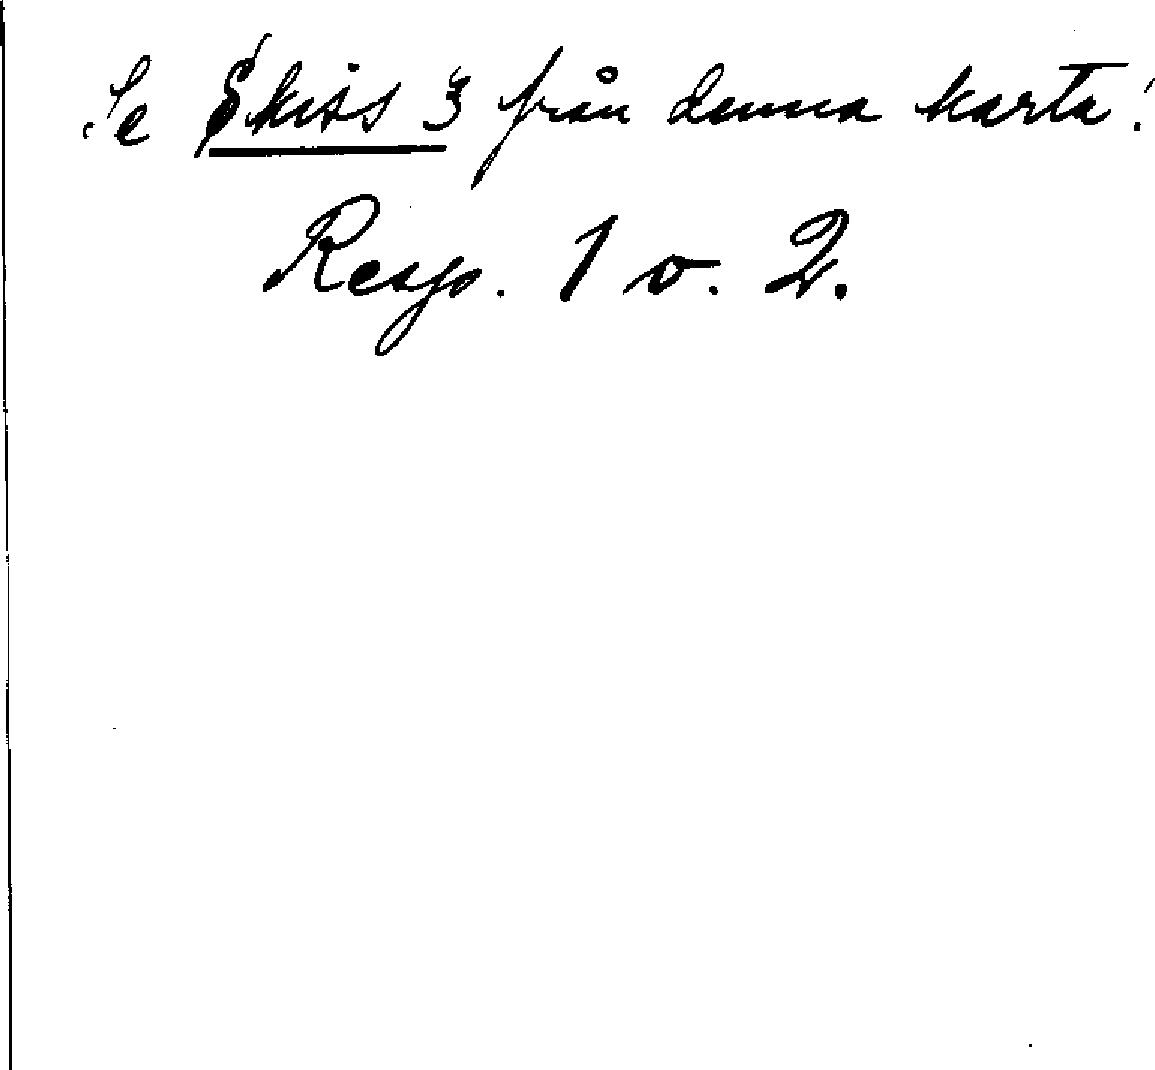 Se Skiss 3 från denna karta!
Resp. 1 o. 2.